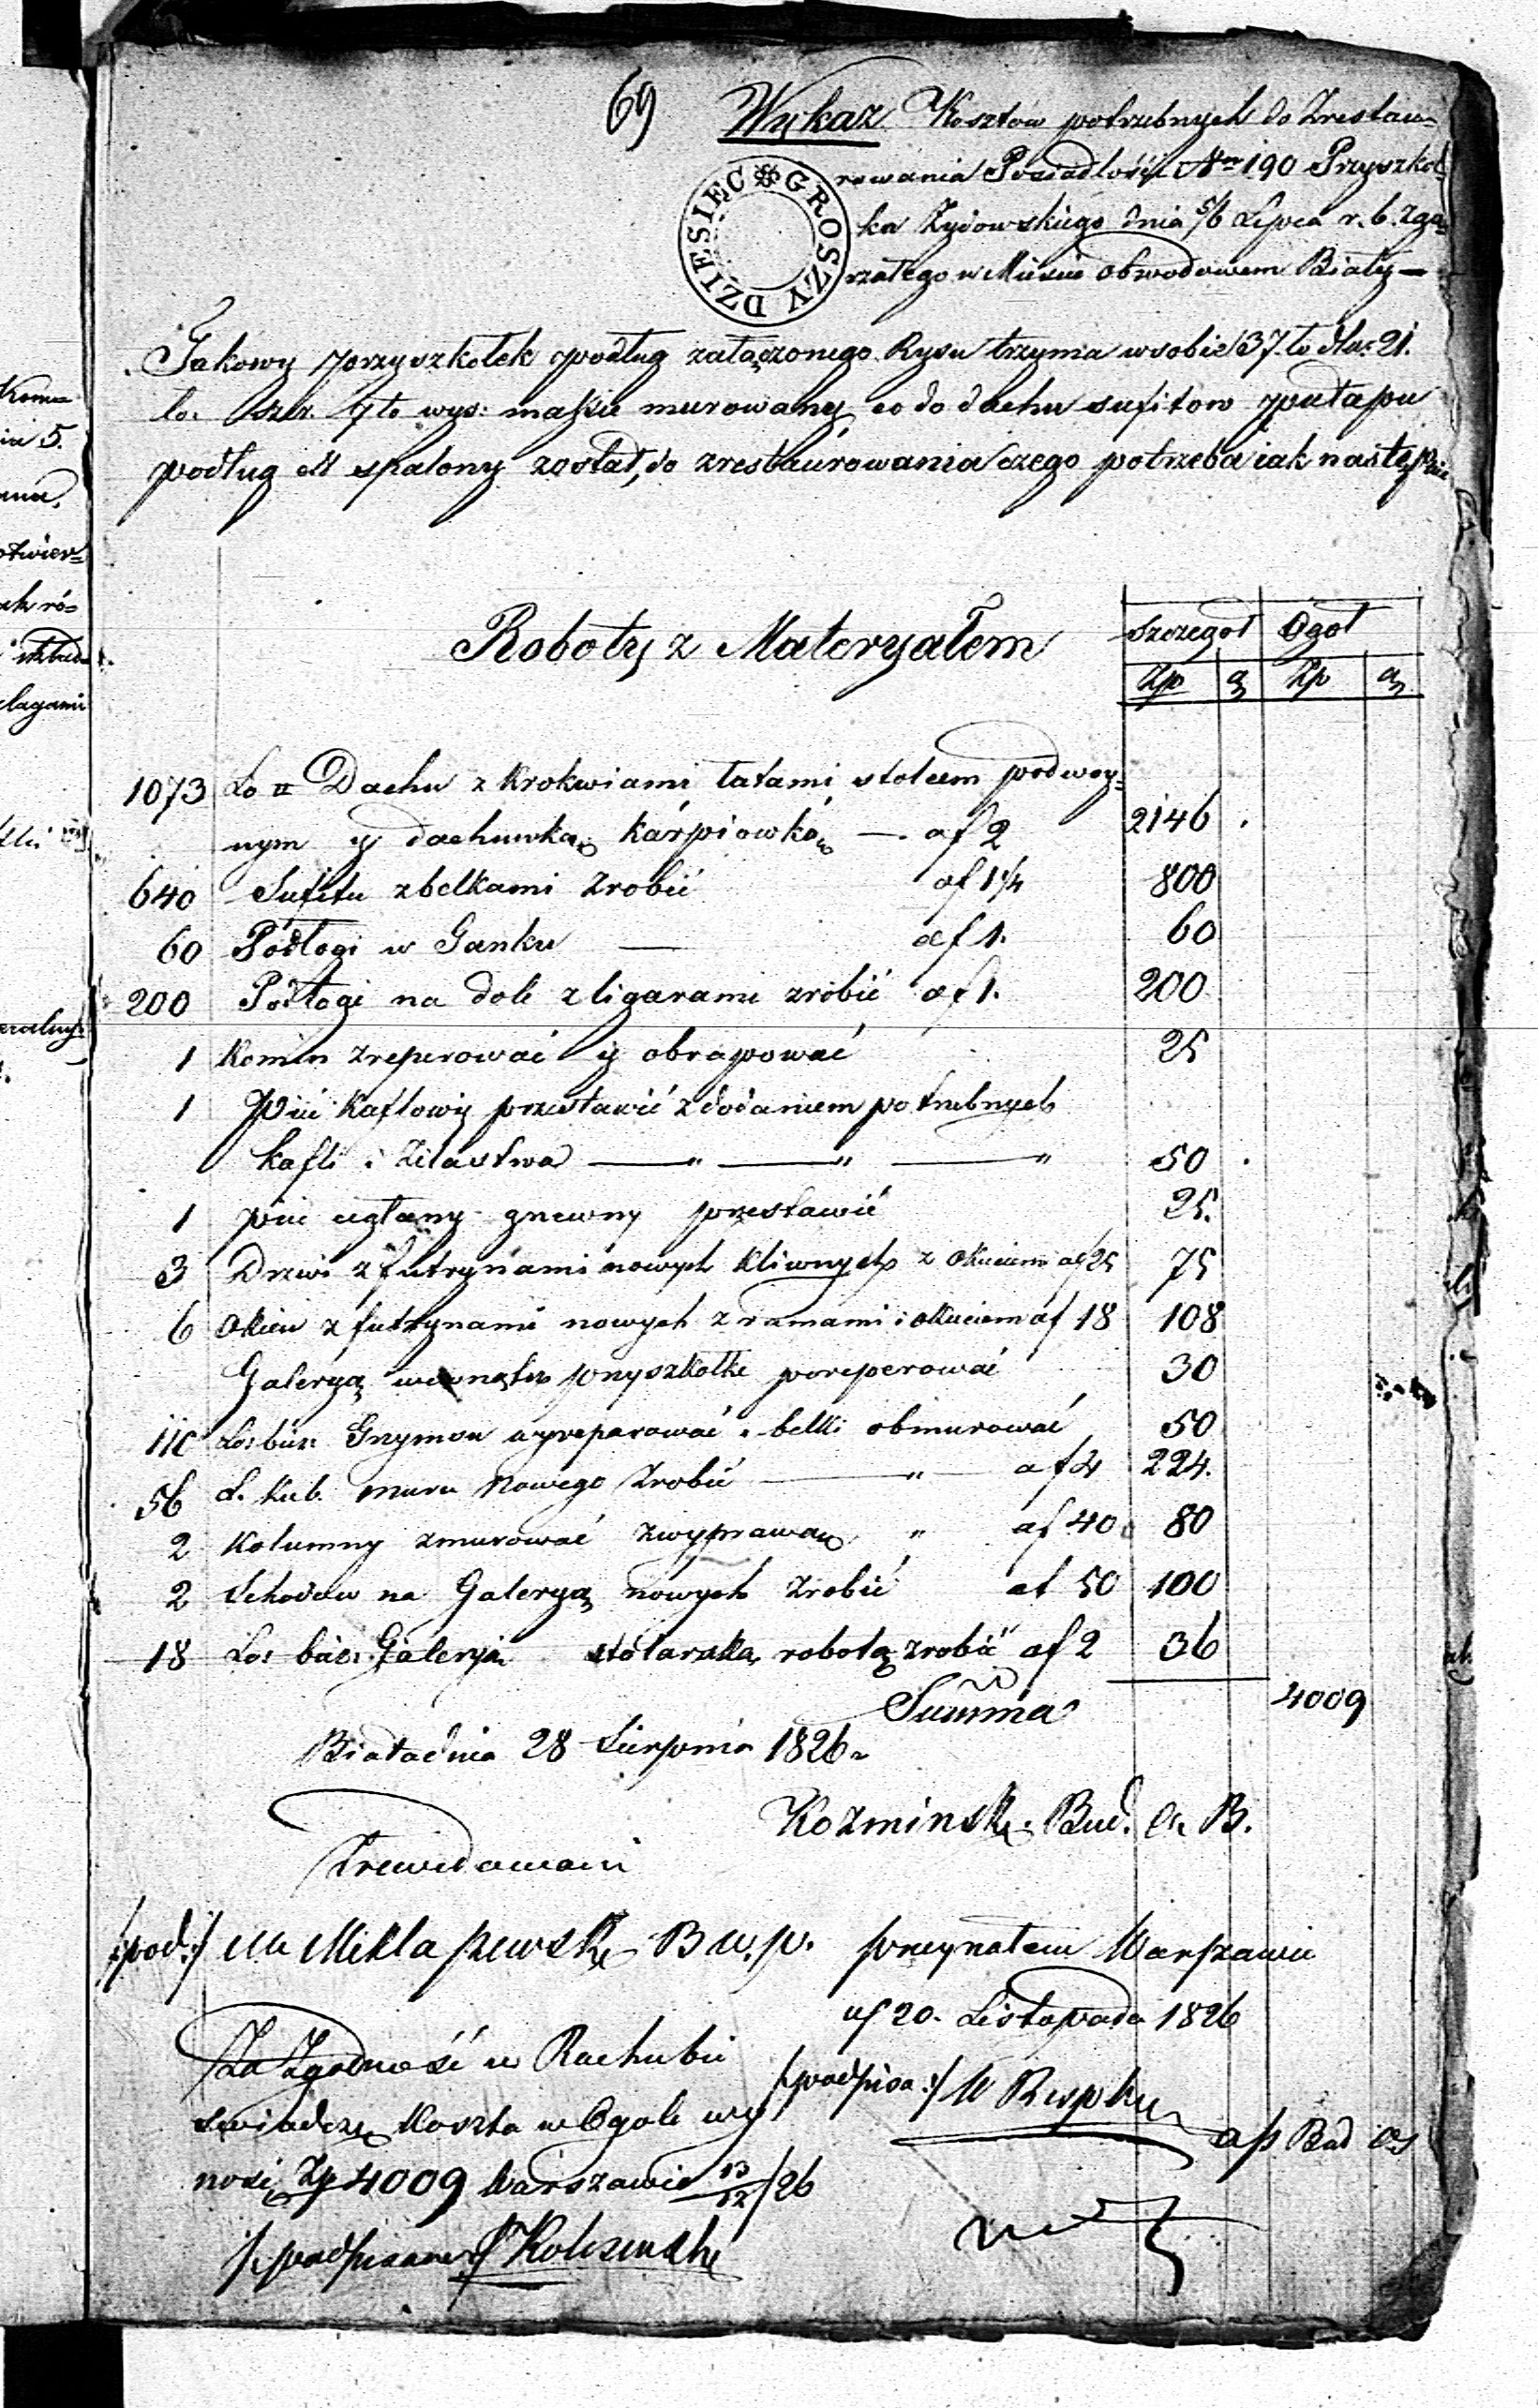 69 Wykaz Kosztów potrzebnych do Zrestau=
rowania Posiadłości Nro 190 Przyszkoł=
ka Żydowskiego dnia 5/6 Lipca r. b. zgo=
rzałego w Mieście Obwodowem Biały —
DZIESIĘC GROSZY
Takowy przyszkołek podług załączonego Rysu trzyma w sobie 37. ło dłu: 21.
ło: szer. 7 ło wys: massie murowany, co do dachu sufitow pułapu
podług spalony został, do zrestaurowania czego potrzeba iak następuie
Roboty z Materyałem
Szczegoł Ogoł
Zp g Zp g
1073 Ło □ Dachu z Krokwiami łatami stolcem podwoy=
nym y dachuwką Karpiowką — af 2 2146
640 Sufitu z belkami zrobić af 1¼ 800
60 Podłogi w Ganku — af 1. 60
200 Podłogi na dole z ligarami zrobić af 1. 200
1 Komin zreperować y obrapować 25
1 Piec Kaflowy przestawić z dodaniem potrzebnych
kafli i żelastwa — " — " — " 50
1 piec ceglany przestawić 25.
3 Drzwi z futrynami nowych z okuciem af 25 75
6 Okien z futrynami nowych z ramami i okuciem af 18 108
Galeryą wewnątrz przyszkołke poreperować 30
110 Ło: bież: Gzymsu wyreparować belki obmurować 50
56 Ł. kub. muru Nowego Zrobić — " — af 4 224.
2 Kolumny zmurować z wyprawą " af 40 80
2 Schodow na Galeryą nowych zrobić af 50 100
18 Ło: bież: Galeryi stolarską robotą zrobić af 2 36
Summa 4009
Biała dnia 28 Sierpnia 1826
Kozminski. Bud. O. B.
Zrewidowani
/:pod:/ Miklaszewski B W. P. przeynałem Warszawie
20. Listopada 1826
Za Zgodność w Rachubie /:podpisa:/ W
świadczę Koszta w Ogole wy
nosi Zp 4009 Warszawie 13/12/26
/:podpisano:/